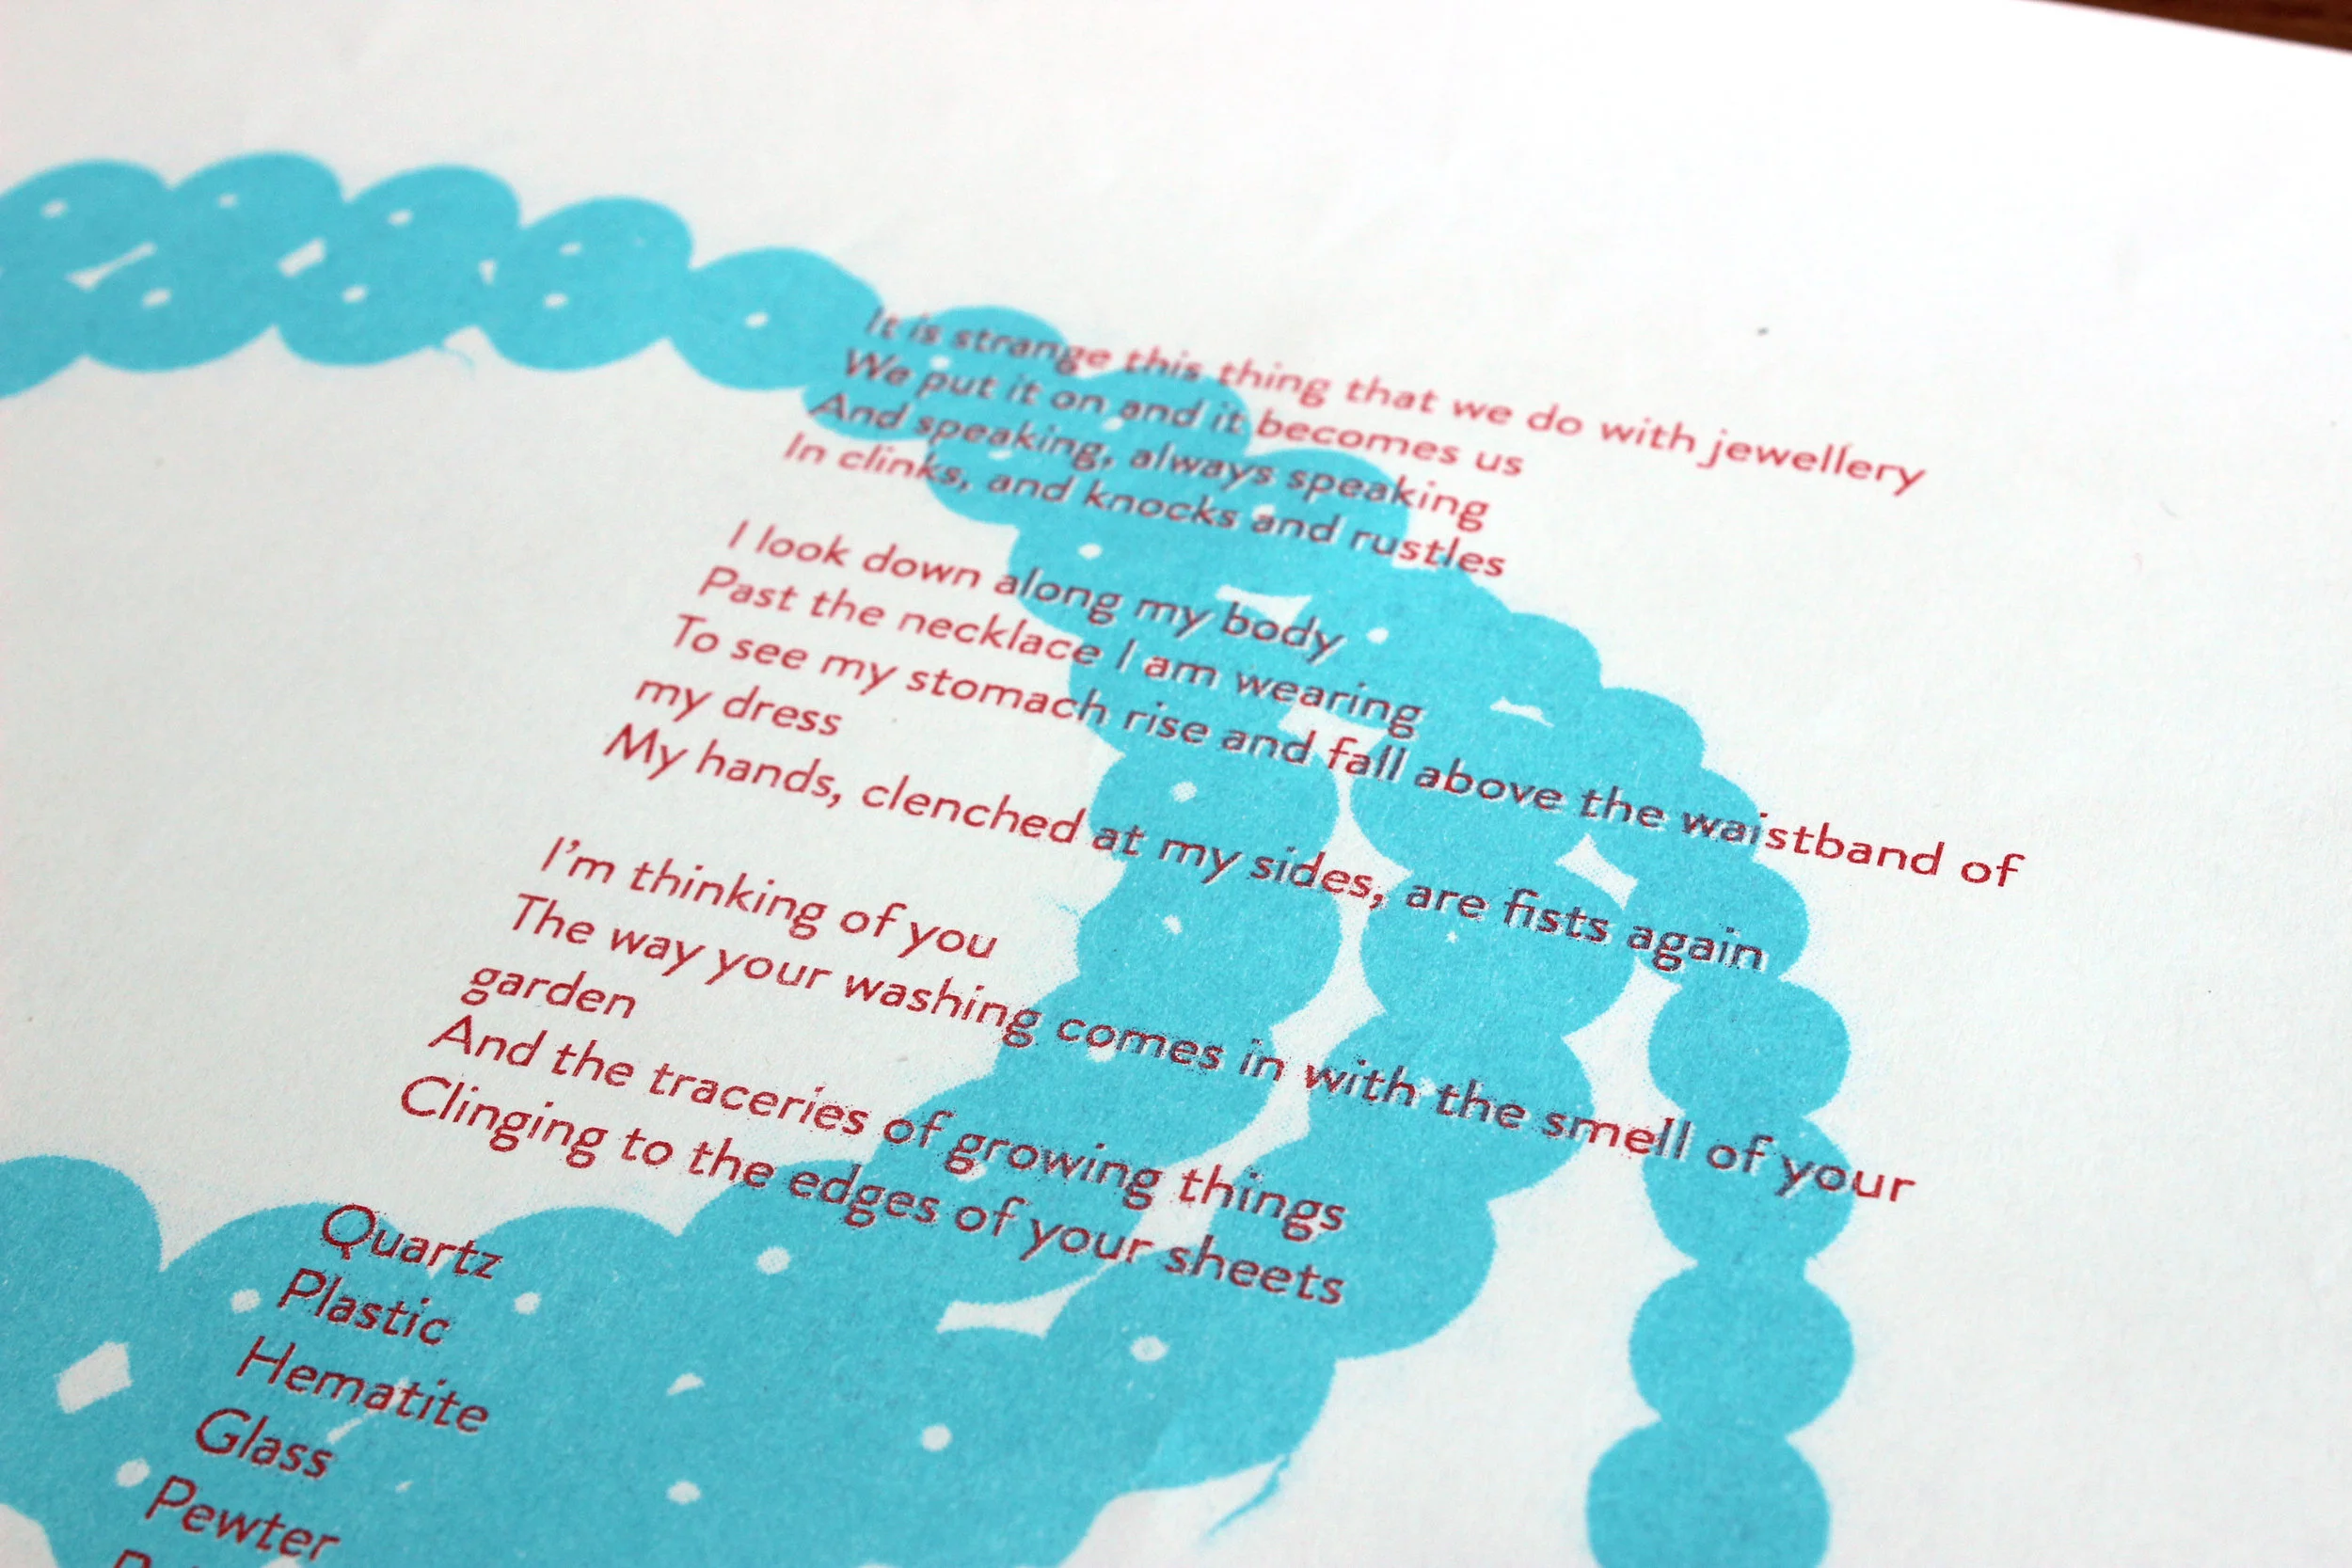 It is strange this thing that we do with jewellery
We put it on and it becomes us
And speaking, always speaking
In clinks, and knocks and rustles
I look down along my body
Past the necklace I am wearing
To see my stomach rise and fall above the waistband of
my dress
My hands, clenched at my sides, are fists again
I'm thinking of you
The way your washing comes in with the smell of your
garden
And the traceries of growing things
Clinging to the edges of your sheets
Quartz
Plastic
Hematite
Glass
Pewter